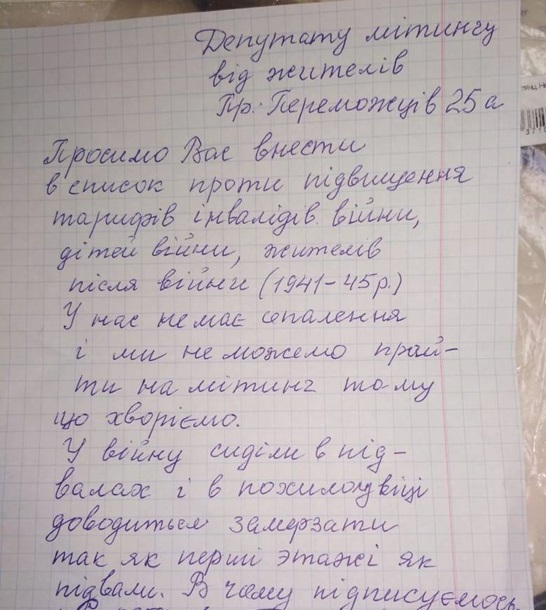 Депутату мітингу
від жителів
Пр. Переможців 25а
Просимо Вас внести
в список проти підвищення
тарифів інвалідів війни,
дітей війни, жителів
після війни (1941-45р.)
У нас немає опалення
і ми не можемо прай-
ти на мітинг тому
що хворіємо.
У війну сиділи в під-
валах і в похилому віці
доводиться замерзати
так як перші этажі як
підвали. В чому підписуємось